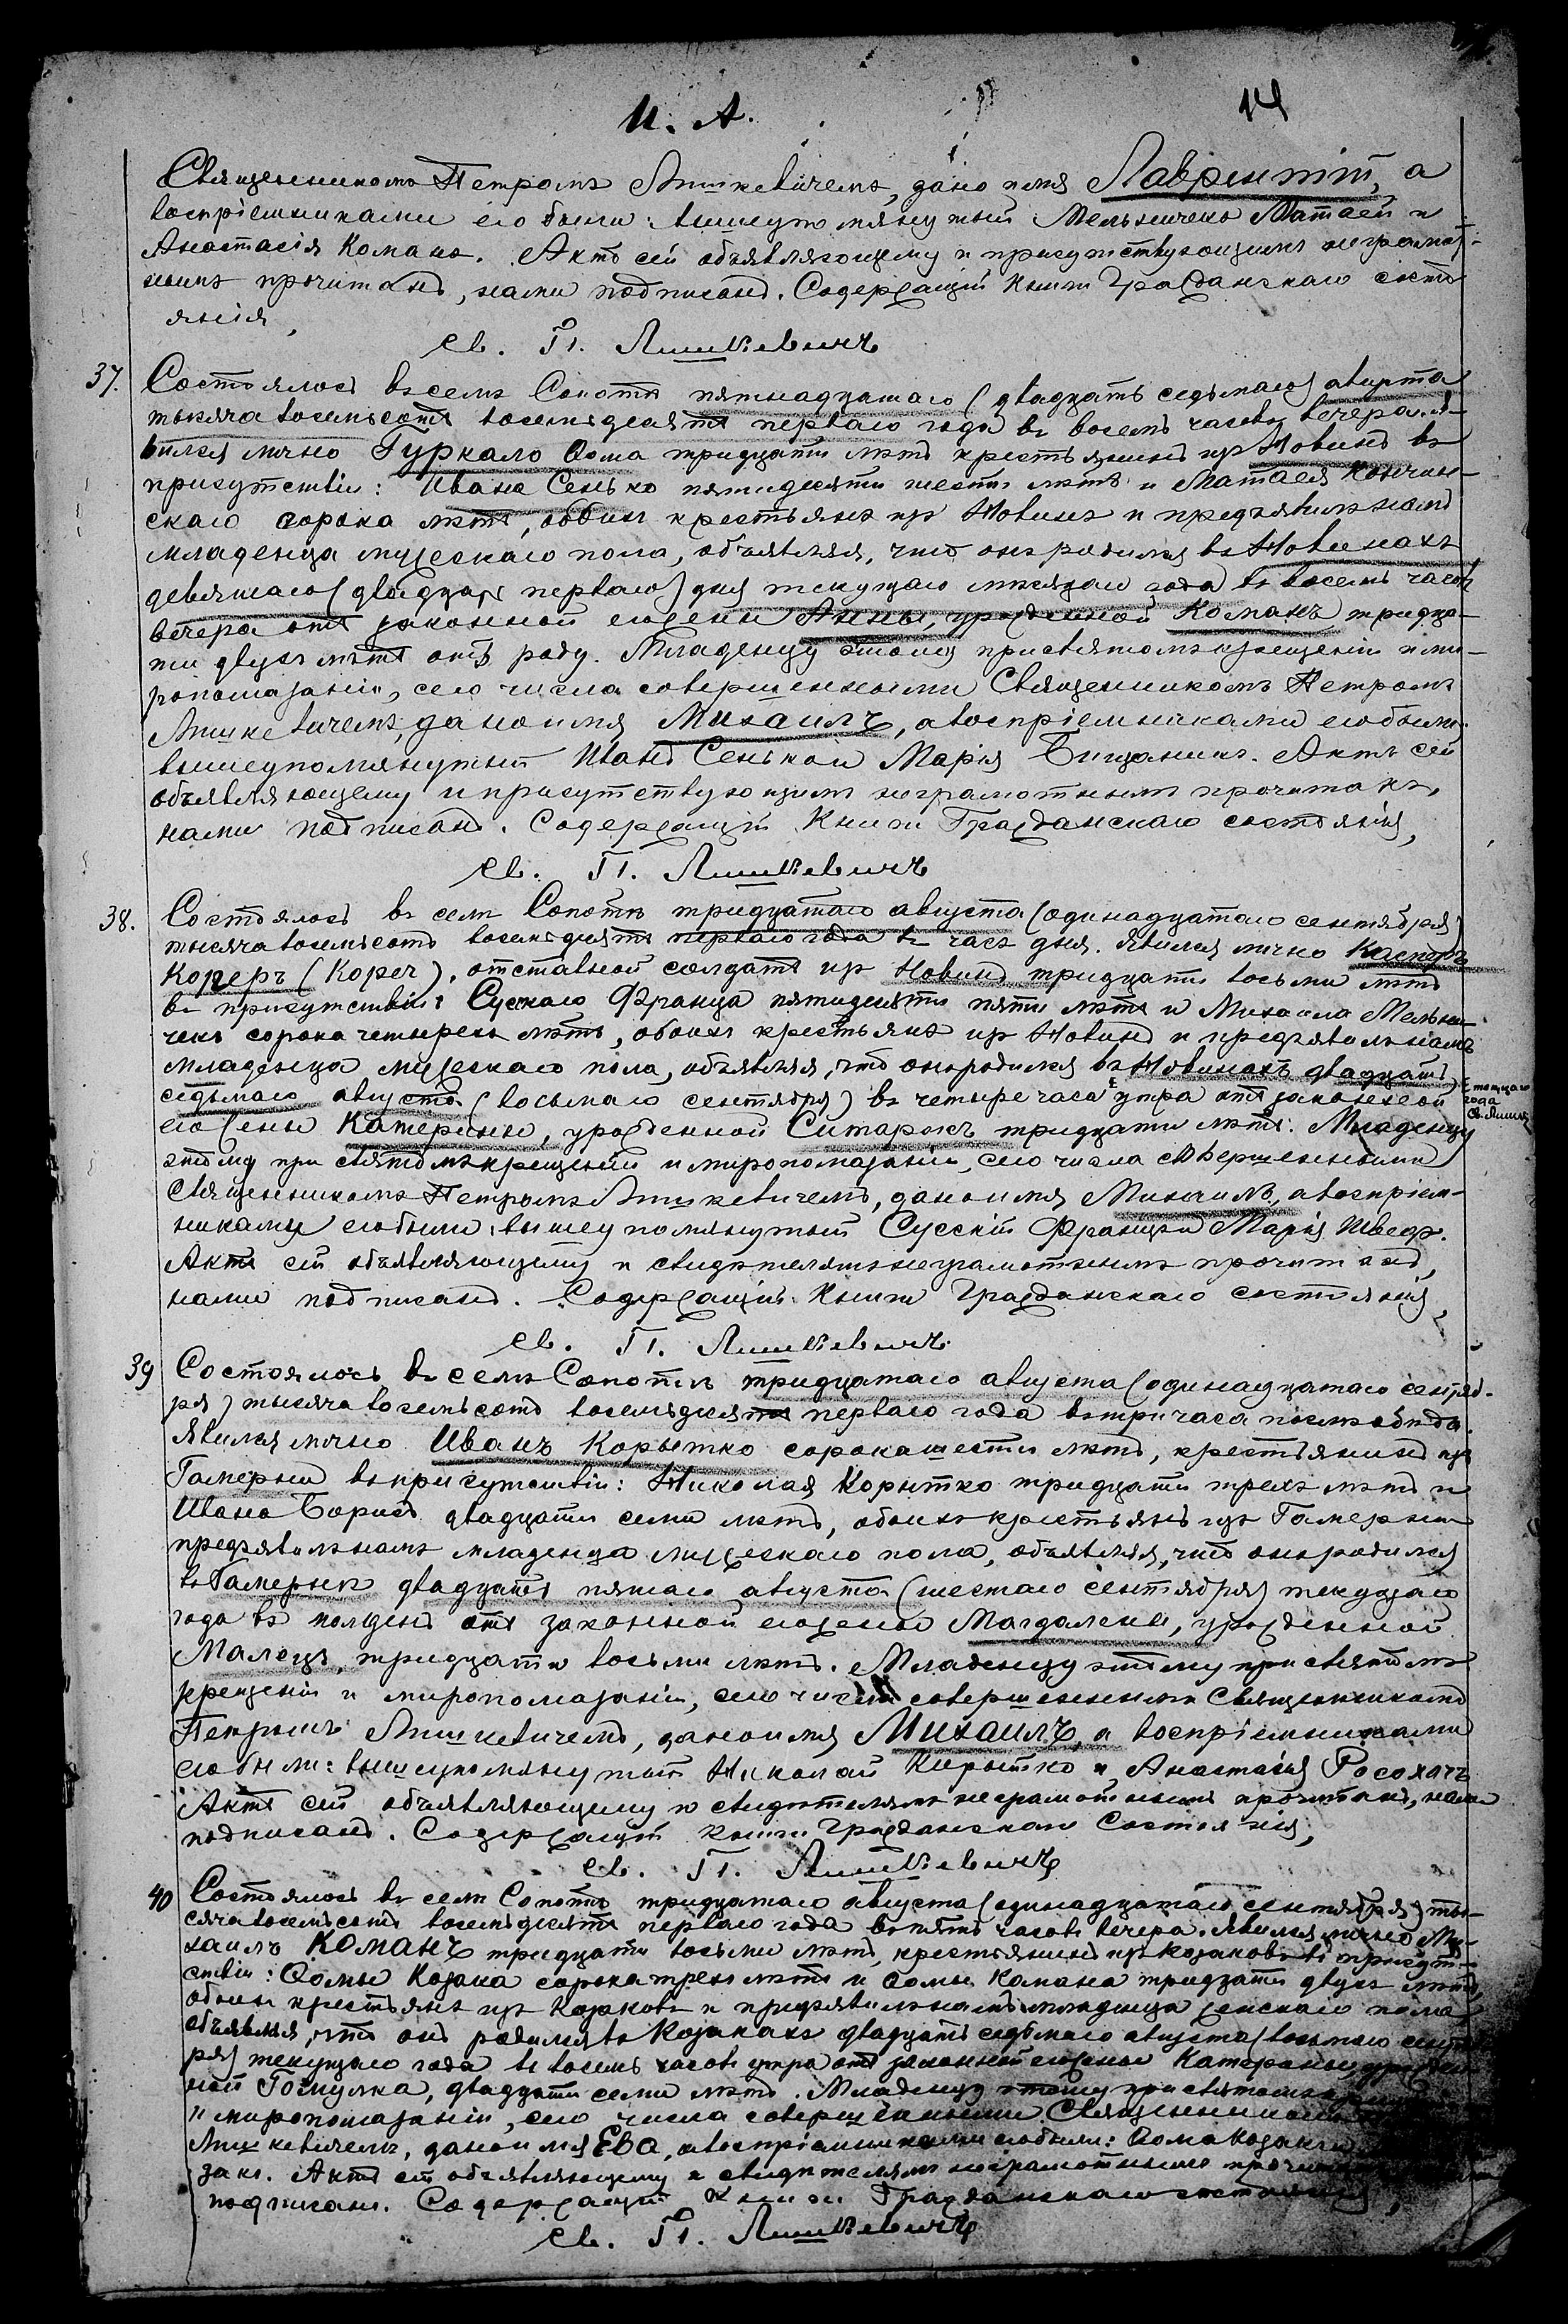 И. А.
14
Священникомъ Петромъ Лишкевичемъ, дано имя Лаврентій, а
воспріемниками его были: вышеупомянутый Мельничекъ Матѳей и
Анастасія Команъ. Актъ сей объявляющему и присутствующимъ неграмот-
нымъ прочитанъ, нами подписанъ. Содержащій Книги Гражданскаго состо
янія,
Св. П. Лишкевичъ
37.
Состоялось въ селѣ Сопотѣ пятнадцатаго (двадцать седьмаго) августа
тысяча восемьсотъ восемьдесятъ перваго года въ восемь часовъ вечера. Я-
вился лично Гуркало Ѳома тридцати лѣтъ крестьянинъ изъ Новинъ въ
присутствіи: Ивана Сенько пятидесяти шести лѣтъ и Матѳея Кончин-
скаго сорока лѣтъ, обоихъ крестьянъ изъ Новинъ и предъявилъ намъ
младенца мужескаго пола, объявляя, что онъ родился въ Новинахъ
девятаго (двадцать перваго) дня текущаго мѣсяца и года въ восемь часовъ
вечера отъ законной его жены Анны, урожденной Команъ тридца-
ти двухъ лѣтъ отъ роду. Младенцу этому при святомъ крещеніи и ми-
ропомазаніи, сего числа совершенными Священникомъ Петромъ
Лишкевичемъ, дано имя Михаилъ, а воспріемниками его были:
вышеупомянутый Иванъ Сенько и Марія Бицанинъ. Актъ сей
объявляющему и присутствующимъ неграмотнымъ прочитанъ,
нами подписанъ. Содержащій Книги Гражданскаго состоянія,
Св. П. Лишкевичъ
38.
Состоялось въ селѣ Сопотѣ тридцатаго августа (одинадцатаго сентября)
тысяча восемьсотъ восемьдесятъ перваго года въ часъ дня. Явился лично Каспръ
Корець (Кореч), отставной солдатъ изъ Новинъ тридцати восьми лѣтъ
въ присутствіи: Сускаго Франца пятидесяти пяти лѣтъ и Михаила Мельни-
чекъ сорока четырехъ лѣтъ, обоихъ крестьянъ изъ Новинъ и предъявилъ намъ
младенца мужескаго пола, объявляя, что онъ родился въ Новинахъ двадцать
седьмаго августа (восьмаго сентября) въ четыре часа утра отъ законной
его жены Катерины, урожденной Ситарекъ тридцати лѣтъ. Младенцу
этому при святомъ крещеніи и миропомазаніи, сего числа совершенными
Священникомъ Петромъ Лишкевичемъ, дано имя Михаилъ, а воспріем-
никами его были: вышеупомянутый Сусскій Францъ и Марія Швед.
Актъ сей объявляющему и свидѣтелямъ неграмотнымъ прочитанъ,
нами подписанъ. Содержащій Книги Гражданскаго состоянія,
Св. П. Лишкевичъ
39
Состоялось въ селѣ Сопотѣ тридцатаго августа (одинадцатаго сентяб-
ря) тысяча восемьсотъ восемьдесятъ перваго года въ три часа послѣ обѣда.
Явился лично Иванъ Корытко сорока шести лѣтъ, крестьянинъ изъ
Гамерни въ присутствіи: Николая Корытко тридцати трехъ лѣтъ и
Ивана Борисъ двадцати семи лѣтъ, обоихъ крестьянъ изъ Гамерни
предъявилъ намъ младенца мужескаго пола, объявляя, что онъ родился
въ Гамернѣ двадцать пятаго августа (шестаго сентября) текущаго
года въ полдень отъ законной его жены Магдалены, урожденной
Малецъ, тридцати восьми лѣтъ. Младенцу этому при святомъ
крещеніи и миропомазаніи, сего числа совершенными Священникомъ
Петромъ Лишкевичемъ, дано имя Михаилъ, а воспріемниками
его были: вышеупомянутый Николай Корытко и Анастасія Росохачъ
Актъ сей объявляющему и свидѣтелямъ неграмотнымъ прочитанъ, нами
подписанъ. Содержащій Книги Гражданскаго Состоянія,
Св. П. Лишкевичъ
40
Состоялось въ селѣ Сопотѣ тридцатаго августа (одинадцатаго сентября) ты-
сяча восемьсотъ восемьдесятъ перваго года въ пять часовъ вечера. Явился лично Ми-
хаилъ Команъ тридцати восьми лѣтъ, крестьянинъ изъ Козаковъ въ присут-
ствіи: Ѳомы Козака сорока трехъ лѣтъ и Ѳомы Камана тридцати двухъ лѣтъ,
обоихъ крестьянъ изъ Козаковъ и предъявилъ намъ младенца женскаго пола
объявляя, что онъ родился въ Козакахъ двадцать седьмаго августа (восьмаго сентяб
ря) текущаго года въ восемь часовъ утра отъ законной его жены Катерины, урожден
ной Гомулка, двадцати семи лѣтъ. Младенцу этому при святомъ
и миропомазаніи, сего числа совершенными Священникомъ
Лишкевичемъ, дано имя Ева, а воспріемниками его были: Ѳома Козакъ и
закъ. Актъ сей объявляющему и свидѣтелямъ неграмотнымъ
подписанъ. Содержащій Книги Гражданскаго состоянія,
Св. П. Лишкевичъ